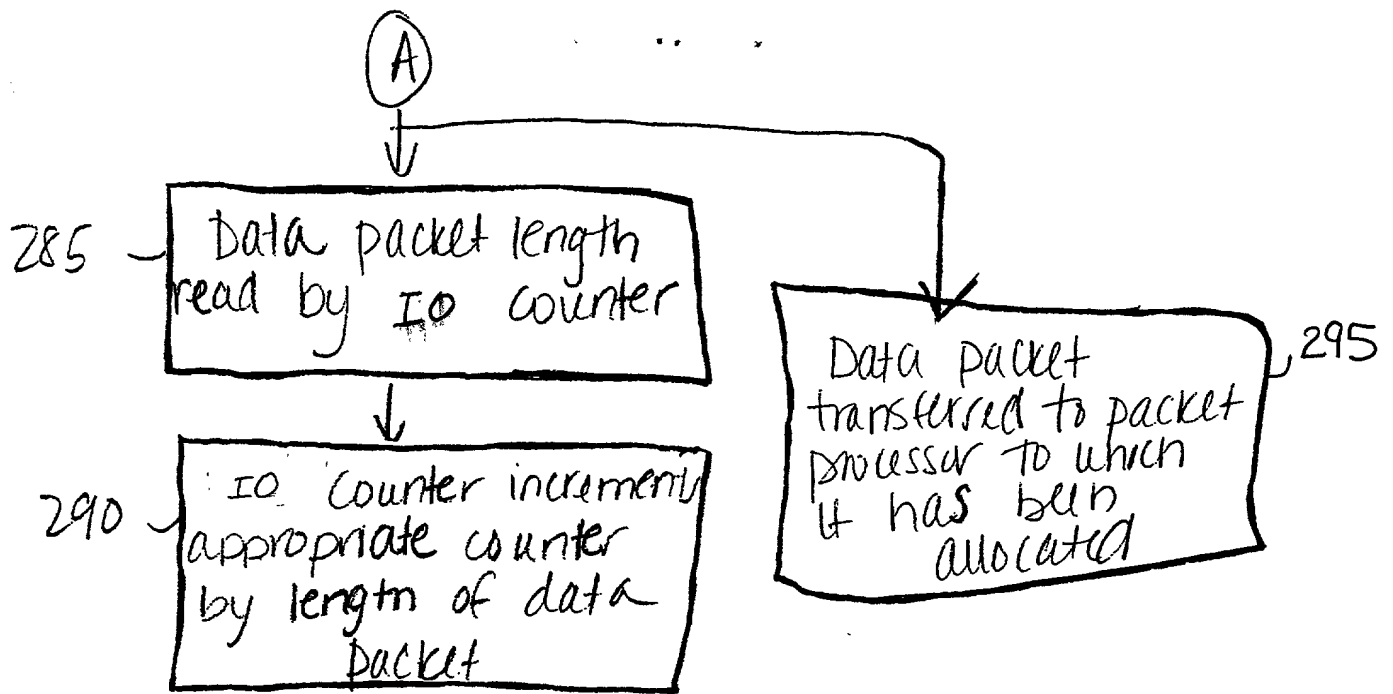 A
285
Data packet length
read by IO counter
290
IO counter increments
appropriate counter
by length of data
packet
Data packet
transferred to packet
processor to which
it has been
allocated
295